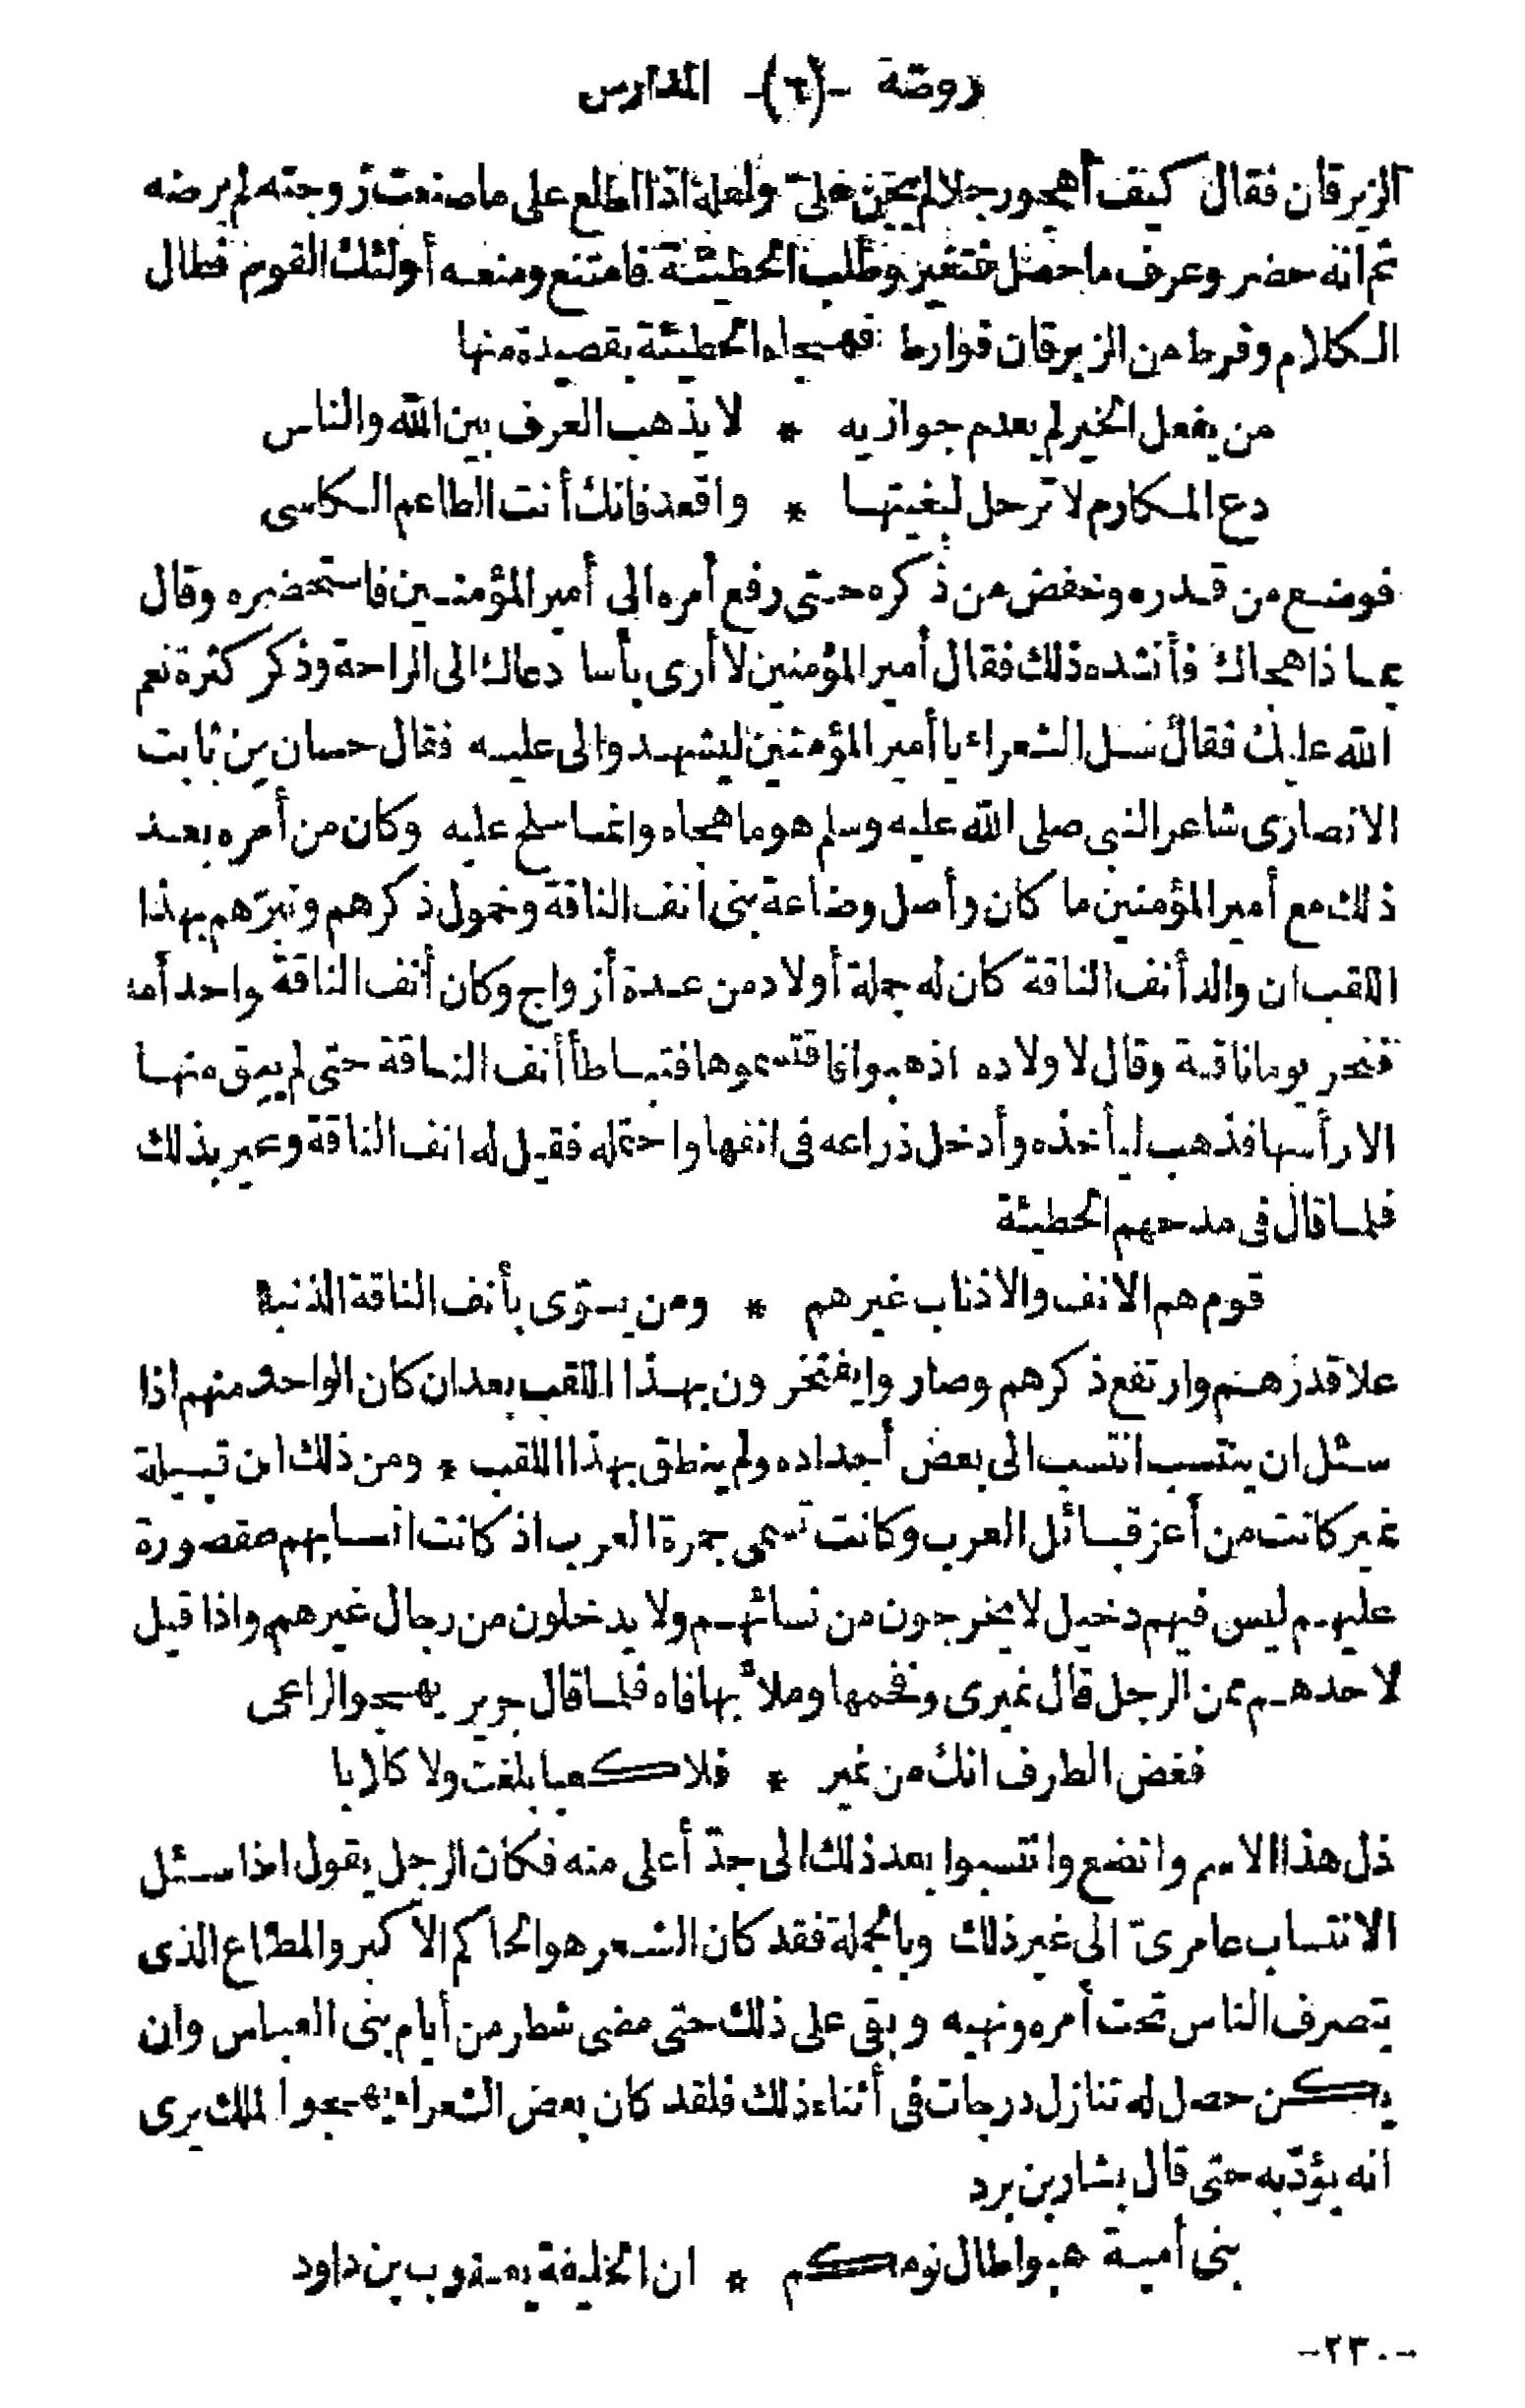 روضة -(٦)- المدارس
الزبرقان فقال كيف أهجور جلالم يجن على ولعله اذا اطلع على ما صنعت زوجته لم يرضه
ثم انه حضر وعرف ما حصل فتغير وطلب الحطيئة فامتنع ومنعه أولئك القوم فطال
الكلام وفرط من الزبرقان قوارط فهجاه الحطيئة بقصيدة منها
من يفعل الخير لم يعدم جوازيه * لا يذهب العرف بين الله والناس
دع المكارم لا ترحل لبغيتها * واقعد فانك أنت الطاعم الكاسى
فوضع من قدره وخفض من ذكره حتى رفع أمره الى أمير المؤمنين فاستحضره وقال
بماذا هجاك فأنشده ذلك فقال أمير المؤمنين لا أرى بأسا دعاك الى الراحة وذكر كثرة نعم
الله عليك فقال سل الشعراء يا أمير المؤمنين ليشهدوا لى عليه فقال حسان بن ثابت
الانصارى شاعر النبى صلى الله عليه وسلم هو ما هجاه وانما سلح عليه وكان من أمره بعد
ذلك مع أمير المؤمنين ما كان وأصل وضاعة بنى انف الناقة وخمول ذكرهم ونبزهم بهذا
اللقب ان والد أنف الناقة كان له جملة أولاد من عدة أزواج وكان أنف الناقة واحد أمه
فنحر يوما ناقة وقال لاولاده اذهبوا فاقتسموها فتباطأ أنف الناقة حتى لم يبق منها
الا رأسها فذهب ليأخذه وأدخل ذراعه فى انفها واحتمله فقيل له انف الناقة وعير بذلك
فلما قال فى مدحهم الحطيئة
قوم هم الانف والاذناب غيرهم * ومن يسوّى بأنف الناقة الذنبا
علا قدرهم وارتفع ذكرهم وصاروا يفتخرون بهذا اللقب بعد ان كان الواحد منهم اذا
سئل ان ينتسب انتسب الى بعض أجداده ولم ينطق بهذا اللقب * ومن ذلك ان قبيلة
نمير كانت من أعز قبائل العرب وكانت تسمى جمرة العرب اذ كانت انسابهم مقصورة
عليهم ليس فيهم دخيل لا يخرجون من نسائهم ولا يدخلون من رجال غيرهم واذا قيل
لاحدهم ممن الرجل قال نميرى وفخمها وملأ بها فاه فلما قال جرير يهجو الراعى
فغض الطرف انك من نمير * فلا كعبا بلغت ولا كلابا
ذل هذا الاسم واتضع وانتسبوا بعد ذلك الى جدّ أعلى منه فكان الرجل يقول اذا سئل
الانتساب عامرىّ الى غير ذلك وبالجملة فقد كان الشعر هو الحاكم الاكبر والمطاع الذى
يتصرف الناس تحت أمره ونهيه وبقى على ذلك حتى مضى شطر من أيام بنى العباس وان
يكن حصل له تنازل درجات فى أثناء ذلك فلقد كان بعض الشعراء يهجوا الملك يرى
انه يؤدّبه حتى قال بشار بن برد
بنى أمية هبوا طال نومكم * ان الخليفة يعقوب بن داود
-٢٣٠-